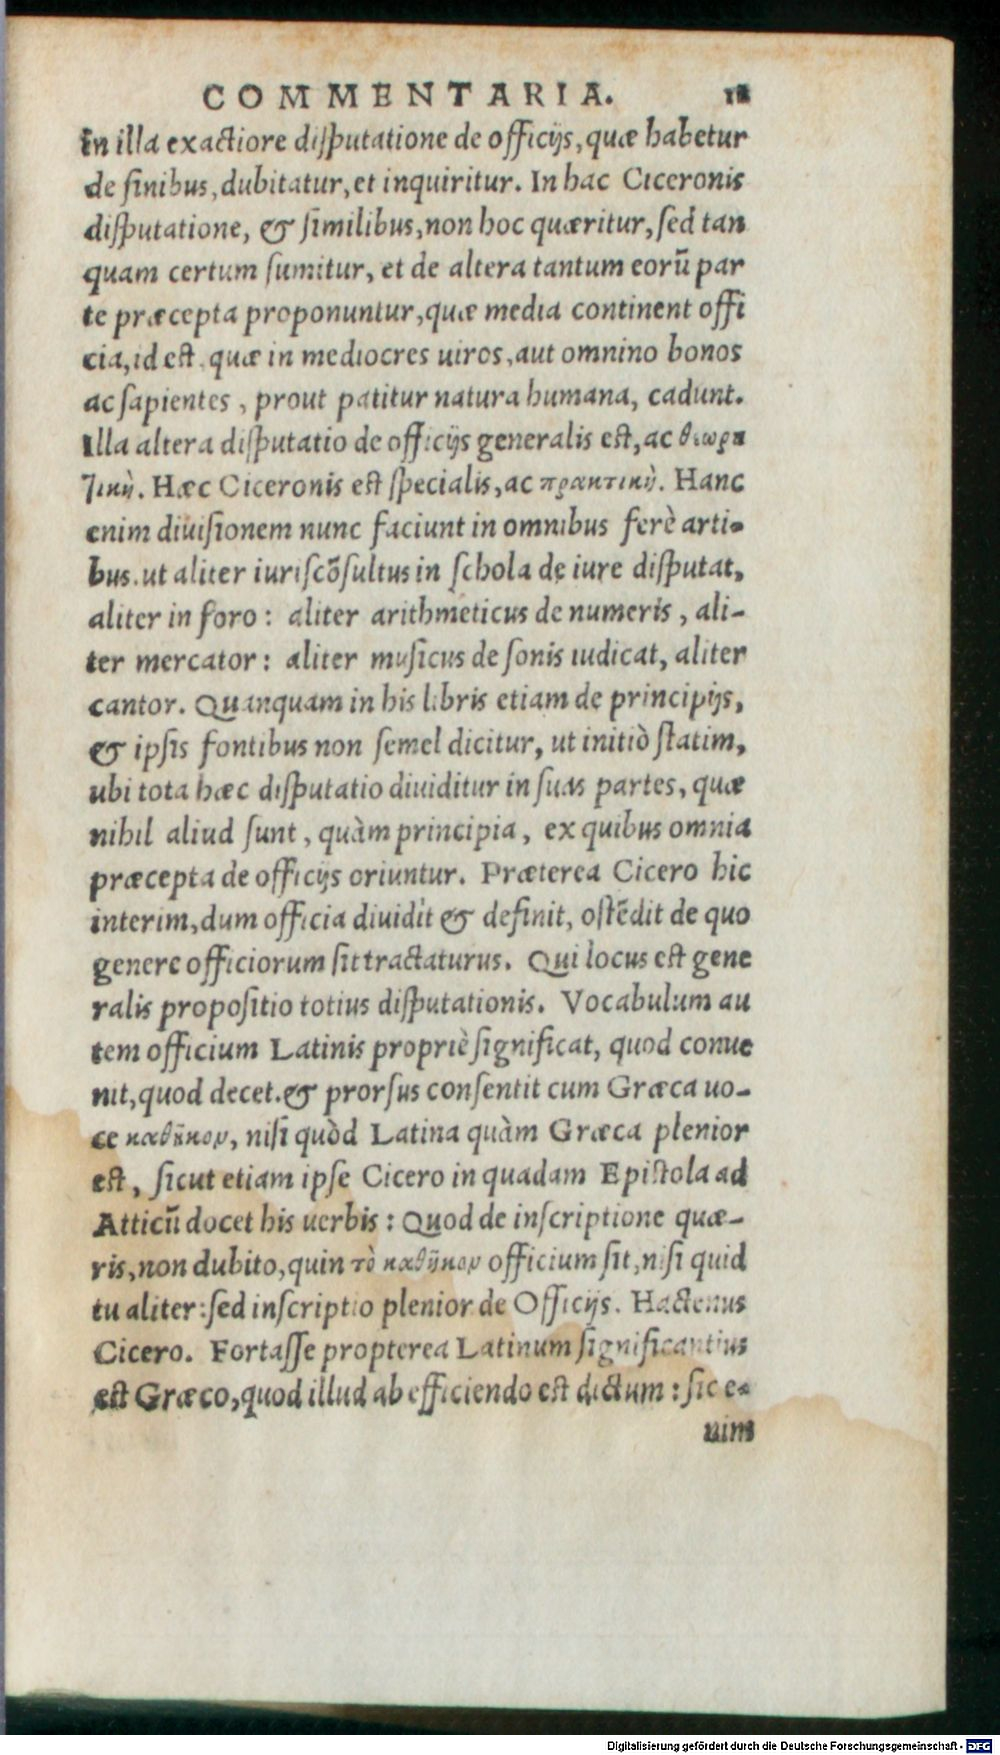 COMMENTARIA. 12
In illa exactiore disputatione de officijs, quæ habetur
de finibus, dubitatur, et inquiritur. In hac Ciceronis
disputatione, & similibus, non hoc quæritur, sed tan
quam certum sumitur, et de altera tantum eorũ par
te præcepta proponuntur, quæ media continent offi
cia, id est. quæ in mediocres uiros, aut omnino bonos
ac sapientes, prout patitur natura humana, cadunt.
Illa altera disputatio de officijs generalis est, ac θεωρη
τικὴ. Hæc Ciceronis est specialis, ac πρακτικὴ. Hanc
enim diuisionem nunc faciunt in omnibus ferè arti-
bus. ut aliter iuriscõsultus in schola de iure disputat,
aliter in foro: aliter arithmeticus de numeris, ali-
ter mercator: aliter musicus de sonis iudicat, aliter
cantor. Quanquam in his libris etiam de principijs,
& ipsis fontibus non semel dicitur, ut initiò statim,
ubi tota hæc disputatio diuiditur in suas partes, quæ
nihil aliud sunt, quàm principia, ex quibus omnia
præcepta de officijs oriuntur. Præterea Cicero hic
interim, dum officia diuidit & definit, ostẽdit de quo
genere officiorum sit tractaturus. Qui locus est gene
ralis propositio totius disputationis. Vocabulum au
tem officium Latinis propriè significat, quod conue
nit, quod decet. & prorsus consentit cum Græca uo-
ce καθῆκον, nisi quòd Latina quàm Græca plenior
est, sicut etiam ipse Cicero in quadam Epistola ad
Atticũ docet his uerbis: Quod de inscriptione quæ-
ris, non dubito, quin τὸ καθῆκον officium sit, nisi quid
tu aliter: sed inscriptio plenior de Officijs. Hactenus
Cicero. Fortasse propterea Latinum significantius
est Græco, quod illud ab efficiendo est dictum: sic e-
nim
Digitalisierung gefördert durch die Deutsche Forschungsgemeinschaft - DFG